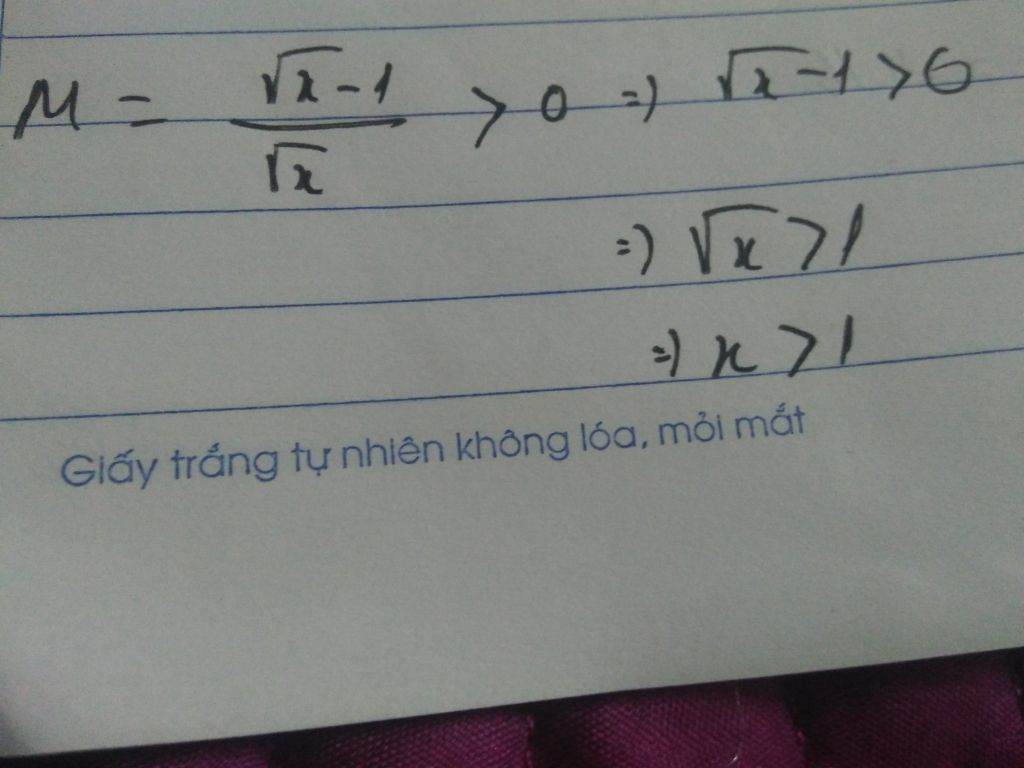 M = (√x - 1)/√x > 0 => √x - 1 > 0
=> √x > 1
=> x > 1
Giấy trắng tự nhiên không lóa, mỏi mắt